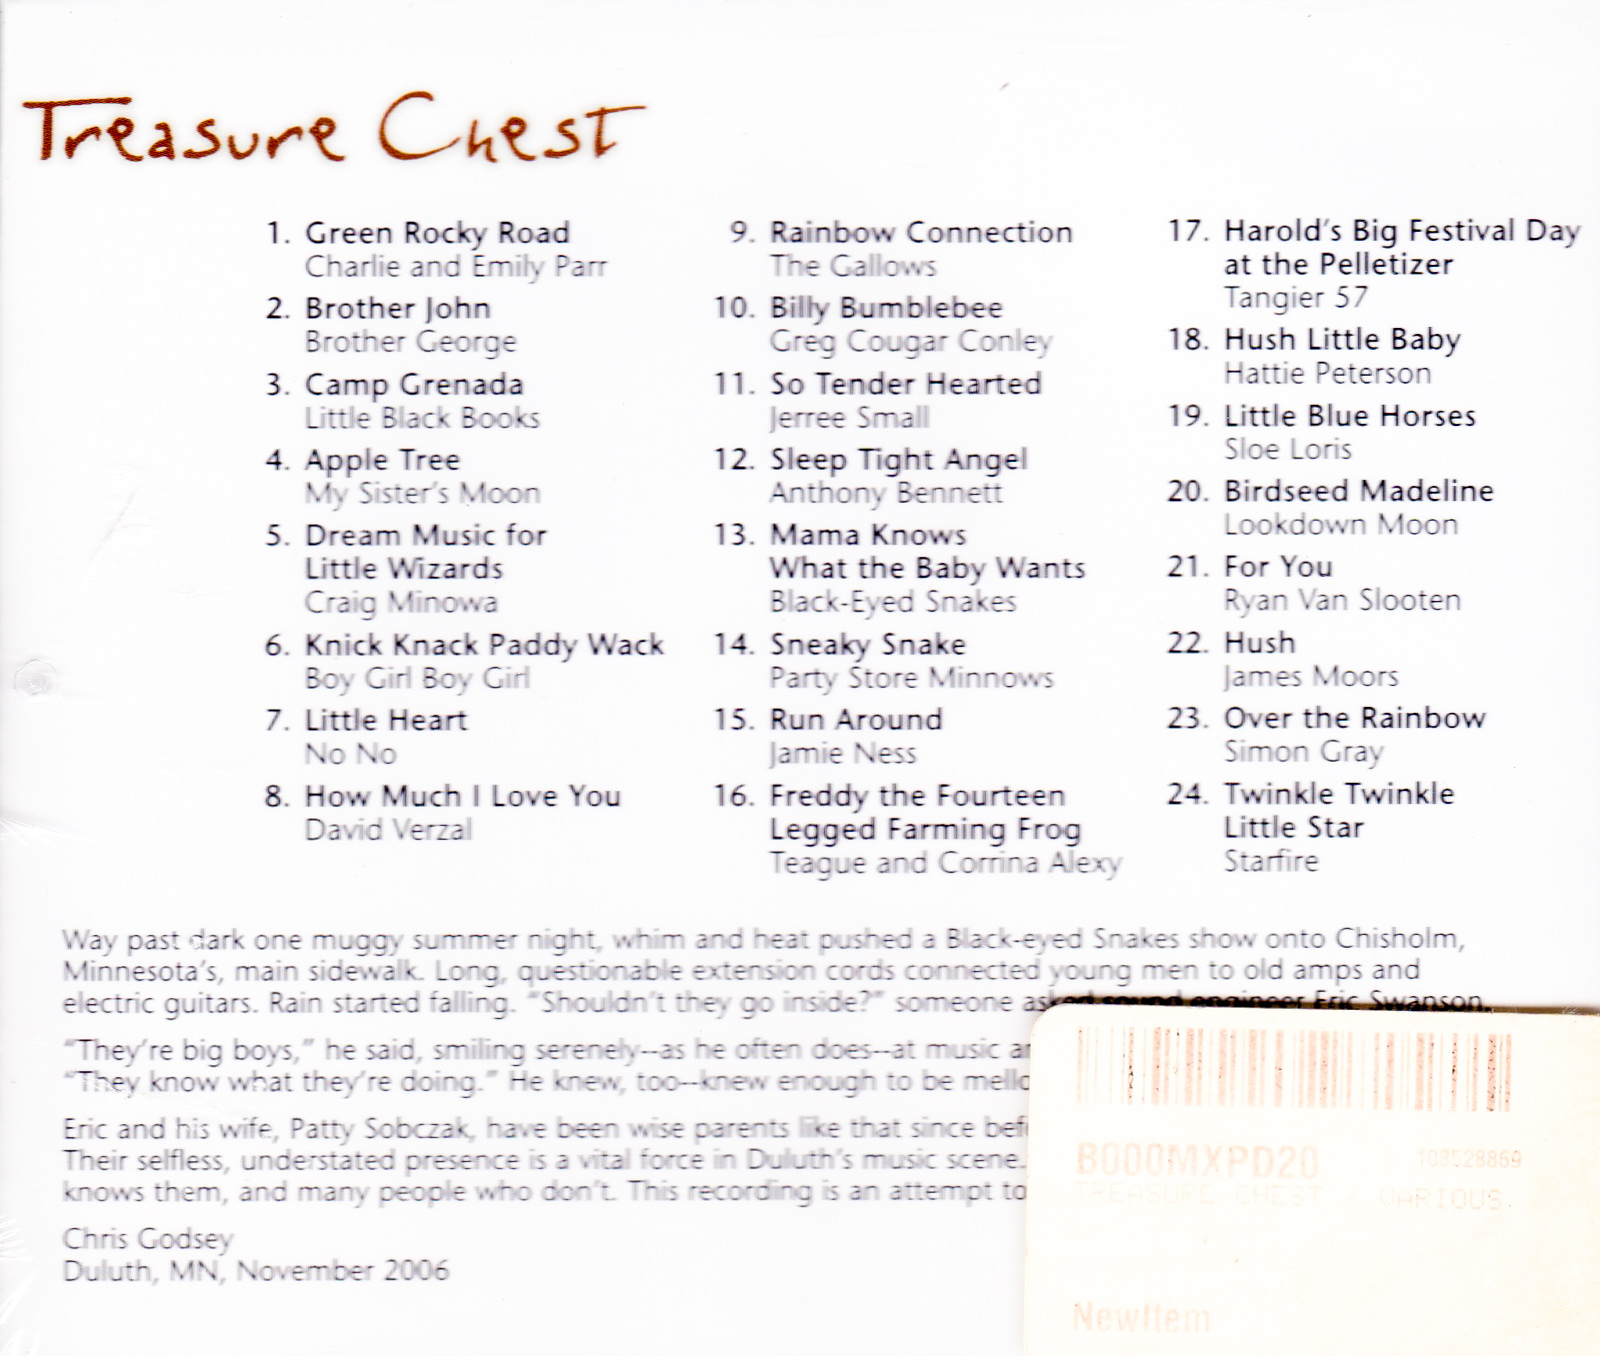 Treasure Chest
1. Green Rocky Road
Charlie and Emily Parr
2. Brother John
Brother George
3. Camp Grenada
Little Black Books
4. Apple Tree
My Sister's Moon
5. Dream Music for
Little Wizards
Craig Minowa
6. Knick Knack Paddy Wack
Boy Girl Boy Girl
7. Little Heart
No No
8. How Much I Love You
David Verzal
9. Rainbow Connection
The Gallows
10. Billy Bumblebee
Greg Cougar Conley
11. So Tender Hearted
Jerree Small
12. Sleep Tight Angel
Anthony Bennett
13. Mama Knows
What the Baby Wants
Black-Eyed Snakes
14. Sneaky Snake
Party Store Minnows
15. Run Around
Jamie Ness
16. Freddy the Fourteen
Legged Farming Frog
Teague and Corrina Alexy
17. Harold's Big Festival Day
at the Pelletizer
Tangier 57
18. Hush Little Baby
Hattie Peterson
19. Little Blue Horses
Sloe Loris
20. Birdseed Madeline
Lookdown Moon
21. For You
Ryan Van Slooten
22. Hush
James Moors
23. Over the Rainbow
Simon Gray
24. Twinkle Twinkle
Little Star
Starfire
Way past dark one muggy summer night, whim and heat pushed a Black-eyed Snakes show onto Chisholm,
Minnesota's, main sidewalk. Long, questionable extension cords connected young men to old amps and
electric guitars. Rain started falling. "Shouldn't they go inside?" someone asked sound engineer Eric Swanson.
"They're big boys," he said, smiling serenely--as he often does--at music
"They know what they're doing." He knew, too--knew enough to be
Eric and his wife, Patty Sobczak, have been wise parents like that since
Their selfless, understated presence is a vital force in Duluth's music scene.
knows them, and many people who don't. This recording is an attempt to
Chris Godsey
Duluth, MN, November 2006
B000MXPD20 103528869
TREASURE CHEST / VARIOUS.
NewItem